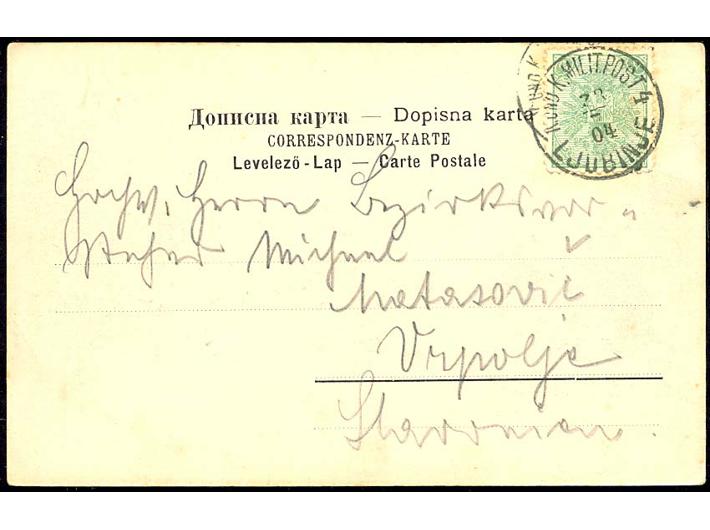 K. UND K. MILIT. POST 4
LJUBINJE
04
Дописна карта — Dopisna karta
CORRESPONDENZ-KARTE
Levelező - Lap — Carte Postale
Hochw. Herrn Bezirksvor-
steher Michael
Matasović
Vrpolje
Slavonien.